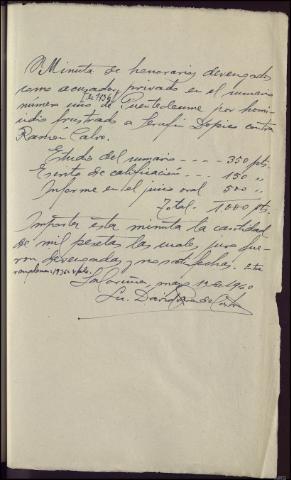 Minuta de honorarios devengados
como acusador privado en el sumario
numero uno de 1936 de Puentedeume por homi-
cidio frustrado a Serafin Dopico contra
Ramón Calvo.
Estudio del sumario - - - - 350 pts.
Escrito de calificación - - - 150 "
Informe en el juicio oral 500 "
Total. 1000 pts.
Importa esta minuta la cantidad
de mil pesetas las cuales fue-
ron devengadas y no satisfechas.
La Coruña, mayo 12 de 1960
David